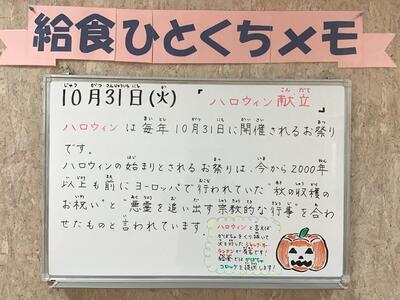 給食ひとくちメモ
10月31日(火) 「ハロウィン献立」
ハロウィンは毎年10月31日に開催されるお祭り
です。
ハロウィンの始まりとされるお祭りは、今から2000年
以上も前にヨーロッパで行われていた"秋の収穫の
お祝い"と"悪霊を追い出す宗教的な行事"を合わ
せたものと言われています。
ハロウィンと言えば
かぼちゃをくり抜いて
火を灯したジャック・オー・
ランタンが有名です!
給食ではかぼちゃ
コロッケを提供します!